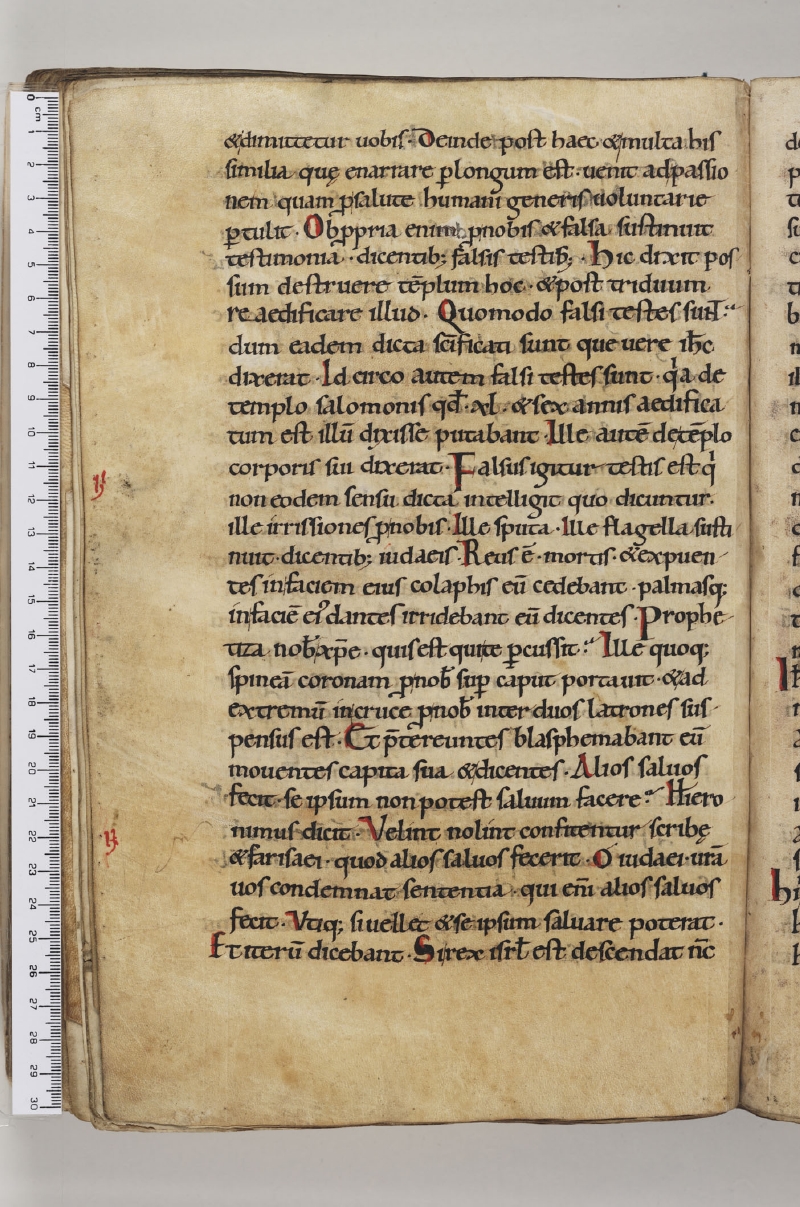 &dimittetur uobis. Deinde post haec &multa his
similia quę enarrare plongum est. uenit adpassio
nem quam psalute humani generis uoluntarie
ptulit. Obppria enim pnobis &falsa sustinuit
testimonia. dicentib; falsis testib; . Hic dixit pos
sum destruere tēplum hoc. &post triduum
reaedificare illud. Quomodo falsi testes sunt
dum eadem dicta scificati sunt que uere ihc
dixerat. Id circo autem falsi testes sunt. qa de
templo salomonis qđ .xl. &sex annis aedifica
tum est illū dixisse putabant. Ille autē detēplo
corporis sui dixerat. Falsus igitur testis est q
non eodem sensu dicta intelligit quo dicuntur.
ille irrissiones pnobis. Ille sputa. Ille flagella susti
nuit. dicentib; iudaeis. Reus ē mortis. &expuen
tes infaciem eius colaphis eū cedebant. palmasq;
infaciē ei dantes irridebant eū dicentes. Prophe
tiza nob xpe. quis est qui te pcussit. Ille quoq;
spineā coronam pnob sup caput portauit. &ad
extremū incruce pnob inter duos latrones sus
pensus est. Et ptereuntes blasphemabant eū
mouentes capita sua &dicentes. Alios saluos
fecit. se ipsum non potest saluum facere. Hiero
nimus dicit. Velint nolint confitentur scribę
&farisaei. quod alios saluos fecerit. O iudaei. urā
uos condemnat sententia. qui eni alios saluos
fecit. Vtiq; si uellet &se ipsum saluare poterat.
Et iterū dicebant. Si rex isrl est descendat nc